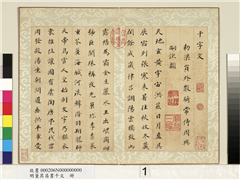 千字文
南梁員外散騎常侍周興
嗣次韻
天地玄黃宇宙洪荒日月盈昃
辰宿列張寒來暑往秋收冬藏
閏餘成歲律呂調陽雲騰致雨
露結為霜金生麗水玉出崑岡
劍號巨闕珠稱夜光果珍李柰菜
重芥薑海鹹河淡鱗潛羽翔龍師
火帝鳥官人皇始制文字乃服衣
裳推位讓國有虞陶唐弔民伐罪
周發殷湯坐朝問道垂拱平章愛
故書000206N000000000
1